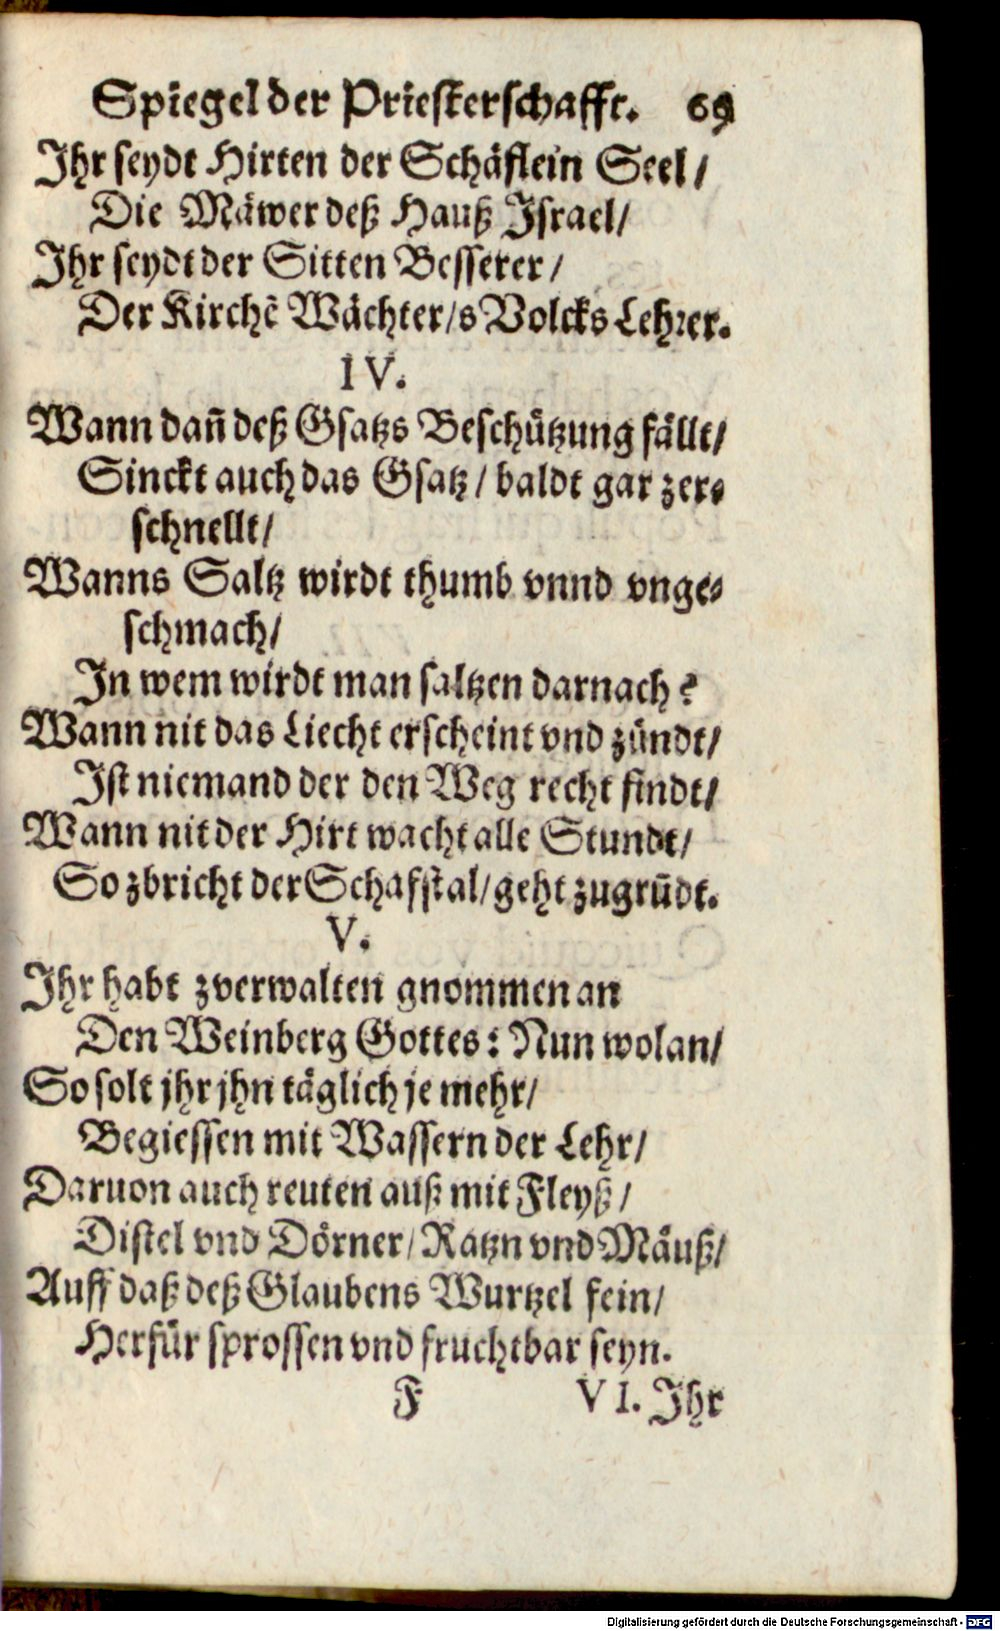 Spiegel der Priesterschafft. 69
Ihr seydt Hirten der Schäflein Seel/
Die Mäwer deß Hauß Israel/
Ihr seydt der Sitten Besserer/
Der Kirchẽ Wächter/s Volcks Lehrer.
IV.
Wann dañ deß Gsatzs Beschützung fällt/
Sinckt auch das Gsatz/ baldt gar zer-
schnellt/
Wanns Saltz wirdt thumb vnnd vnge-
schmach/
In wem wirdt man saltzen darnach?
Wann nit das Liecht erscheint vnd zündt/
Ist niemand der den Weg recht findt/
Wann nit der Hirt wacht alle Stundt/
So zbricht der Schafstal/geht zu grũdt.
V.
Ihr habt zverwalten gnommen an
Den Weinberg Gottes: Nun wolan/
So solt jhr jhn täglich je mehr/
Begiessen mit Wassern der Lehr/
Daruon auch reuten auß mit Fleyß/
Distel vnd Dörner/ Ratzn vnd Mäuß/
Auff daß deß Glaubens Wurtzel fein/
Herfür sprossen vnd fruchtbar seyn.
F VI. Ihr
Digitalisierung gefördert durch die Deutsche Forschungsgemeinschaft - DFG